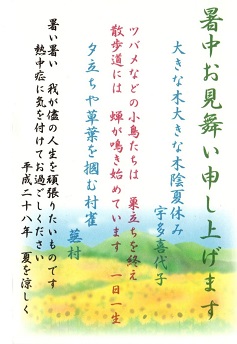 暑中お見舞い申し上げます
大きな木大きな木陰夏休み
宇多喜代子
ツバメなどの小鳥たちは　巣立ちを終え
散歩道には　蝉が鳴き始めています　一日一生
夕立ちや草葉を掴む村雀　蕪村
暑い暑い　我が儘の人生を頑張りたいものです
熱中症に気を付けてお過ごしください
平成二十八年　夏を涼しく